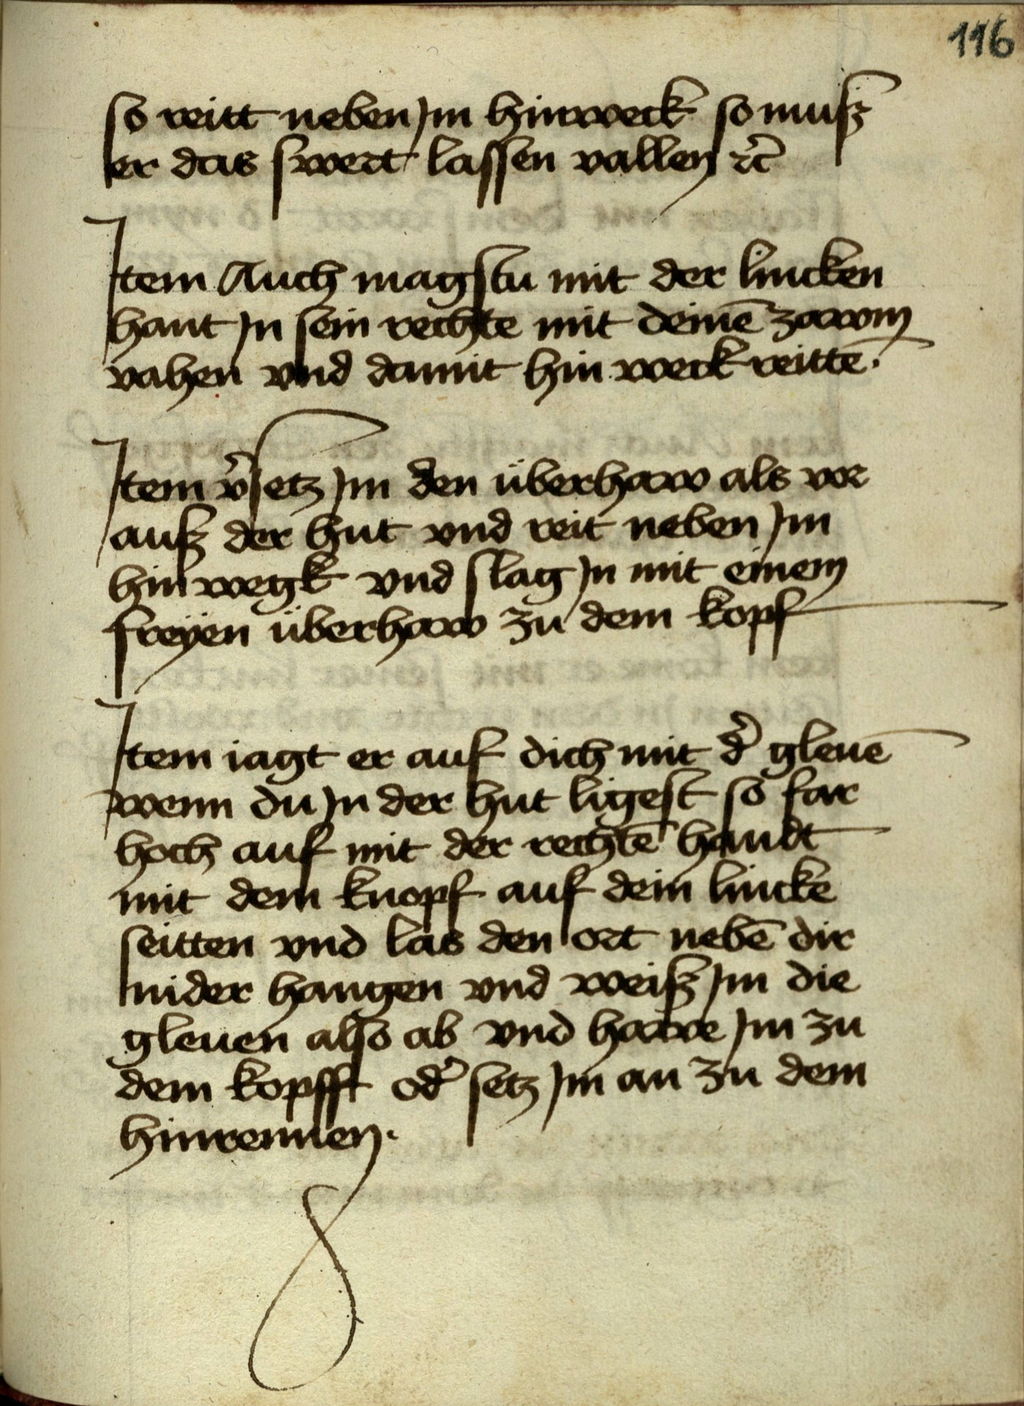 116
so reitt neben Jm hinweck so muß
er das swert lassen vallen ꝛc̄
Item Auch magstu mit der lincken
hant Jn sein rechte mit deinē zawm
vahen vnd damit hin weck reittē.
Item v̾setz Jm den überhaw als vor
auß der hut vnd reit neben Jm
hin wegk vnd slag Jn mit einem
freyen überhaw zu dem kopf
Item iagt er auf dich mit d̾ gleuē
wenn du Jn der hut ligest so far
hoch auf mit der rechtē handt
mit dem knopf auf dein lincke
seitten vnd las den ort nebē dir
nider hangen vnd weiß Jm die
gleuen also ab vnd hawe Jm zu
dem kopfft od̾ setz Jm an zu dem
hinrennen.